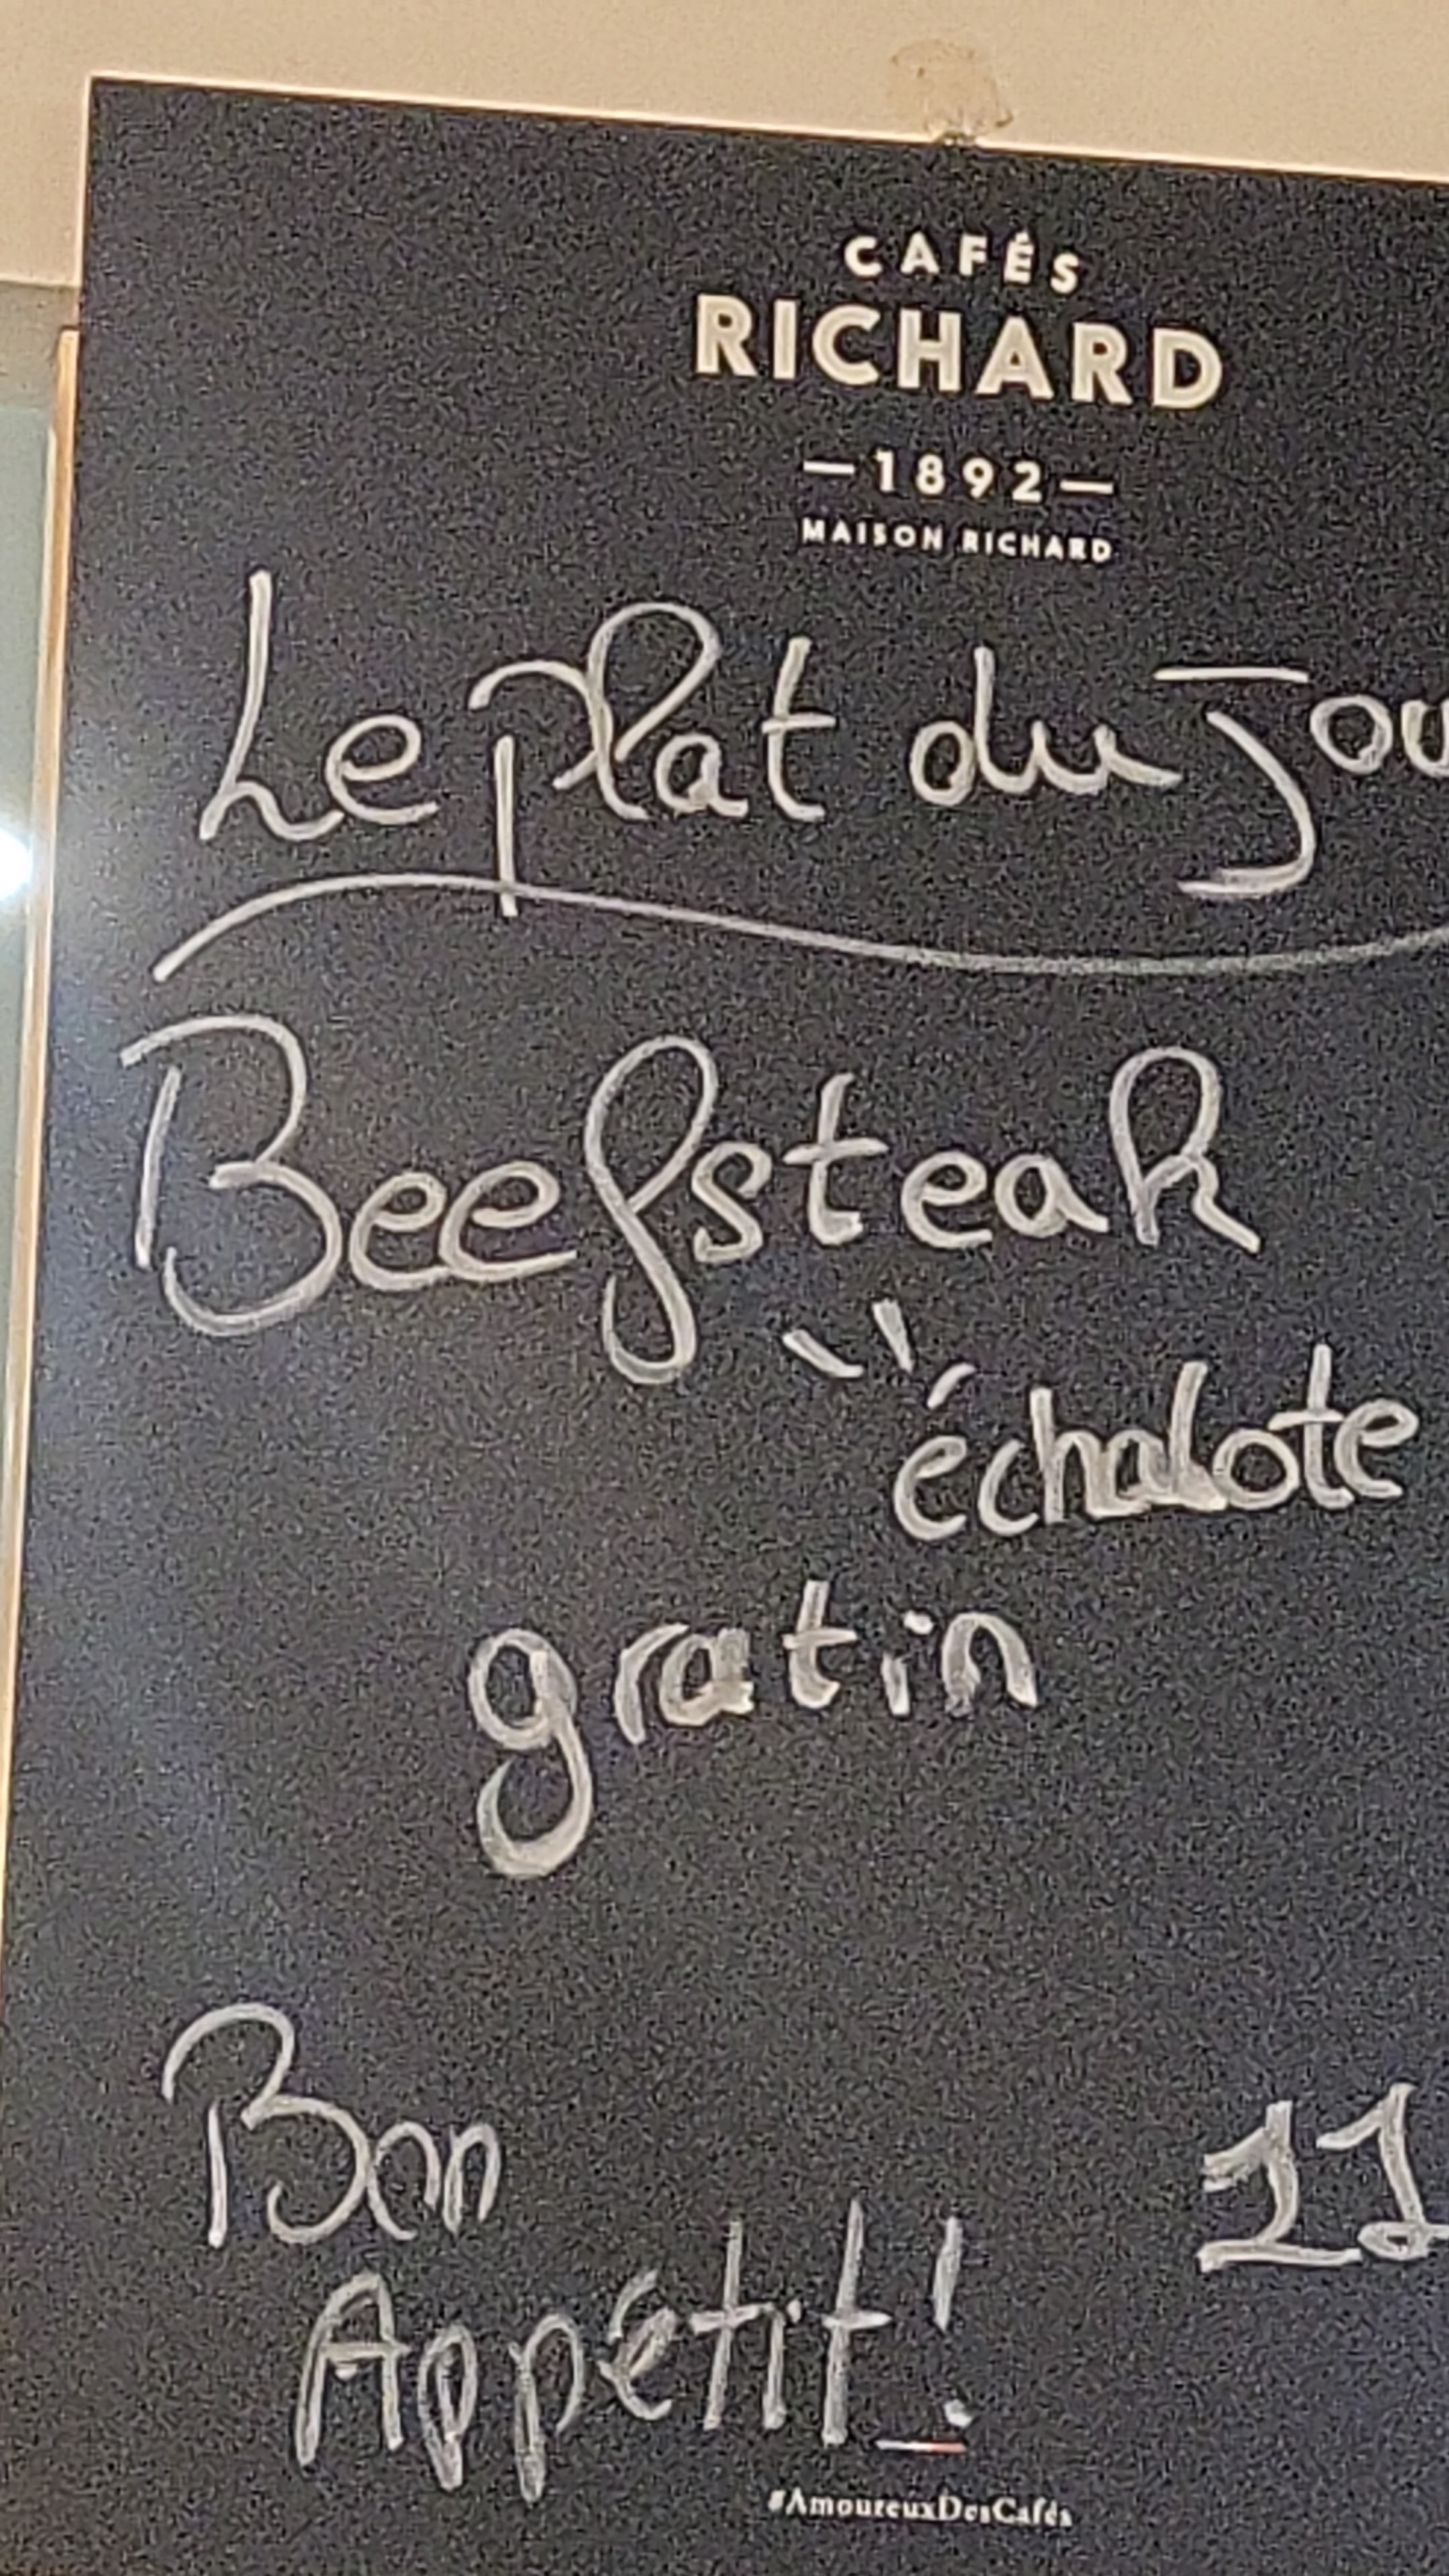 CAFÉS
RICHARD
—1892—
MAISON RICHARD
Le plat du Jou
Beefsteak
échalote
gratin
Bon
11
Appétit!
#AmoureuxDesCafés